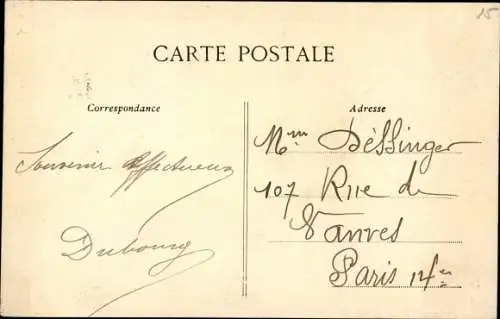 15
CARTE POSTALE
Correspondance
Souvenir affectueux
Dubourg
Adresse
Mme Déssinger
107 Rue de
Vanves
Paris 14e